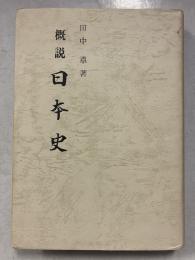 田中 章 著
概説
日本史